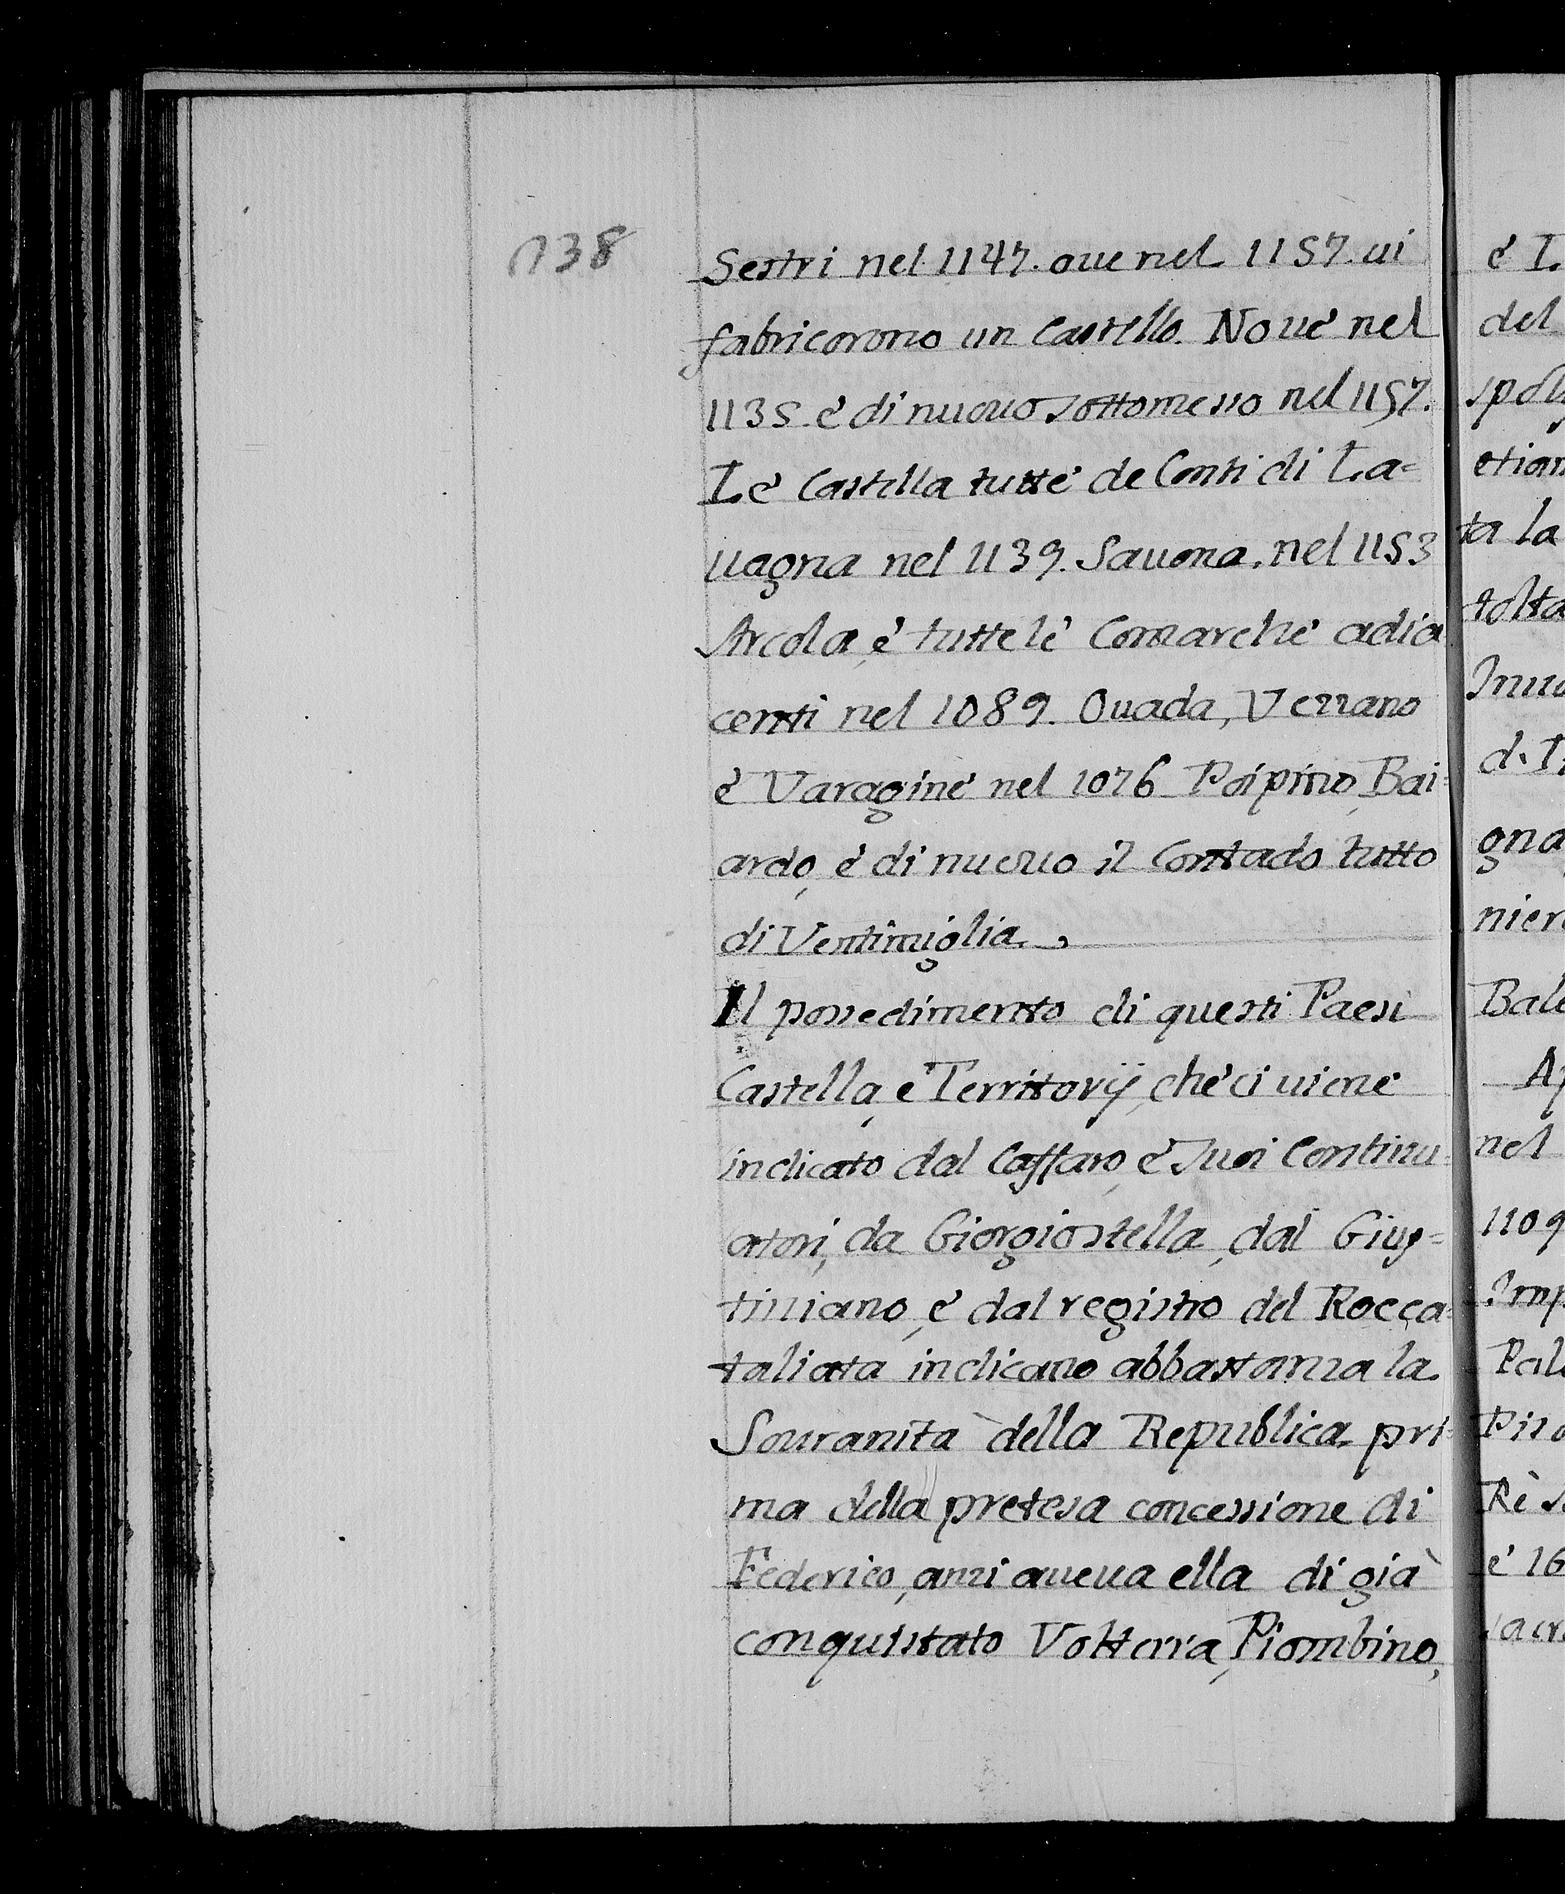 138
Sestri nel 1147. oue nel 1157. ui
fabricorono un Castello. Noue nel
1135 è di nuouo sottomesso nel 1157.
Le Castella tutte de Conti di La=
uagna nel 1139. Sauona. nel 1153
Arcola, è tutte le Comarche adia
centi nel 1089. Ouada, Vezzano
è Varagine nel 1076 Poipino, Bai=
ardo, è di nuouo il Contado tutto
di Ventimiglia.
Il possedimento di questi Paesi
Castella, e Territorij, che ci uiene
indicato dal Caffaro, è suoi Continu=
atori, da Giorgio stella, dal Gius=
tiniano, è dal registro del Rocca=
taliata indicano abbastanza la
Souranità della Republica pri=
ma della pretesa concessione di
Federico, anzi aueua ella di già
conquistato Volterra, Piombino,
è I.
del
spoli
etian
ta la
tolta
Inua
d. I
gna
niera
Bale
Ap
nel
1109
Imp
Pale
Pisa
Rè s
è 16
sacr